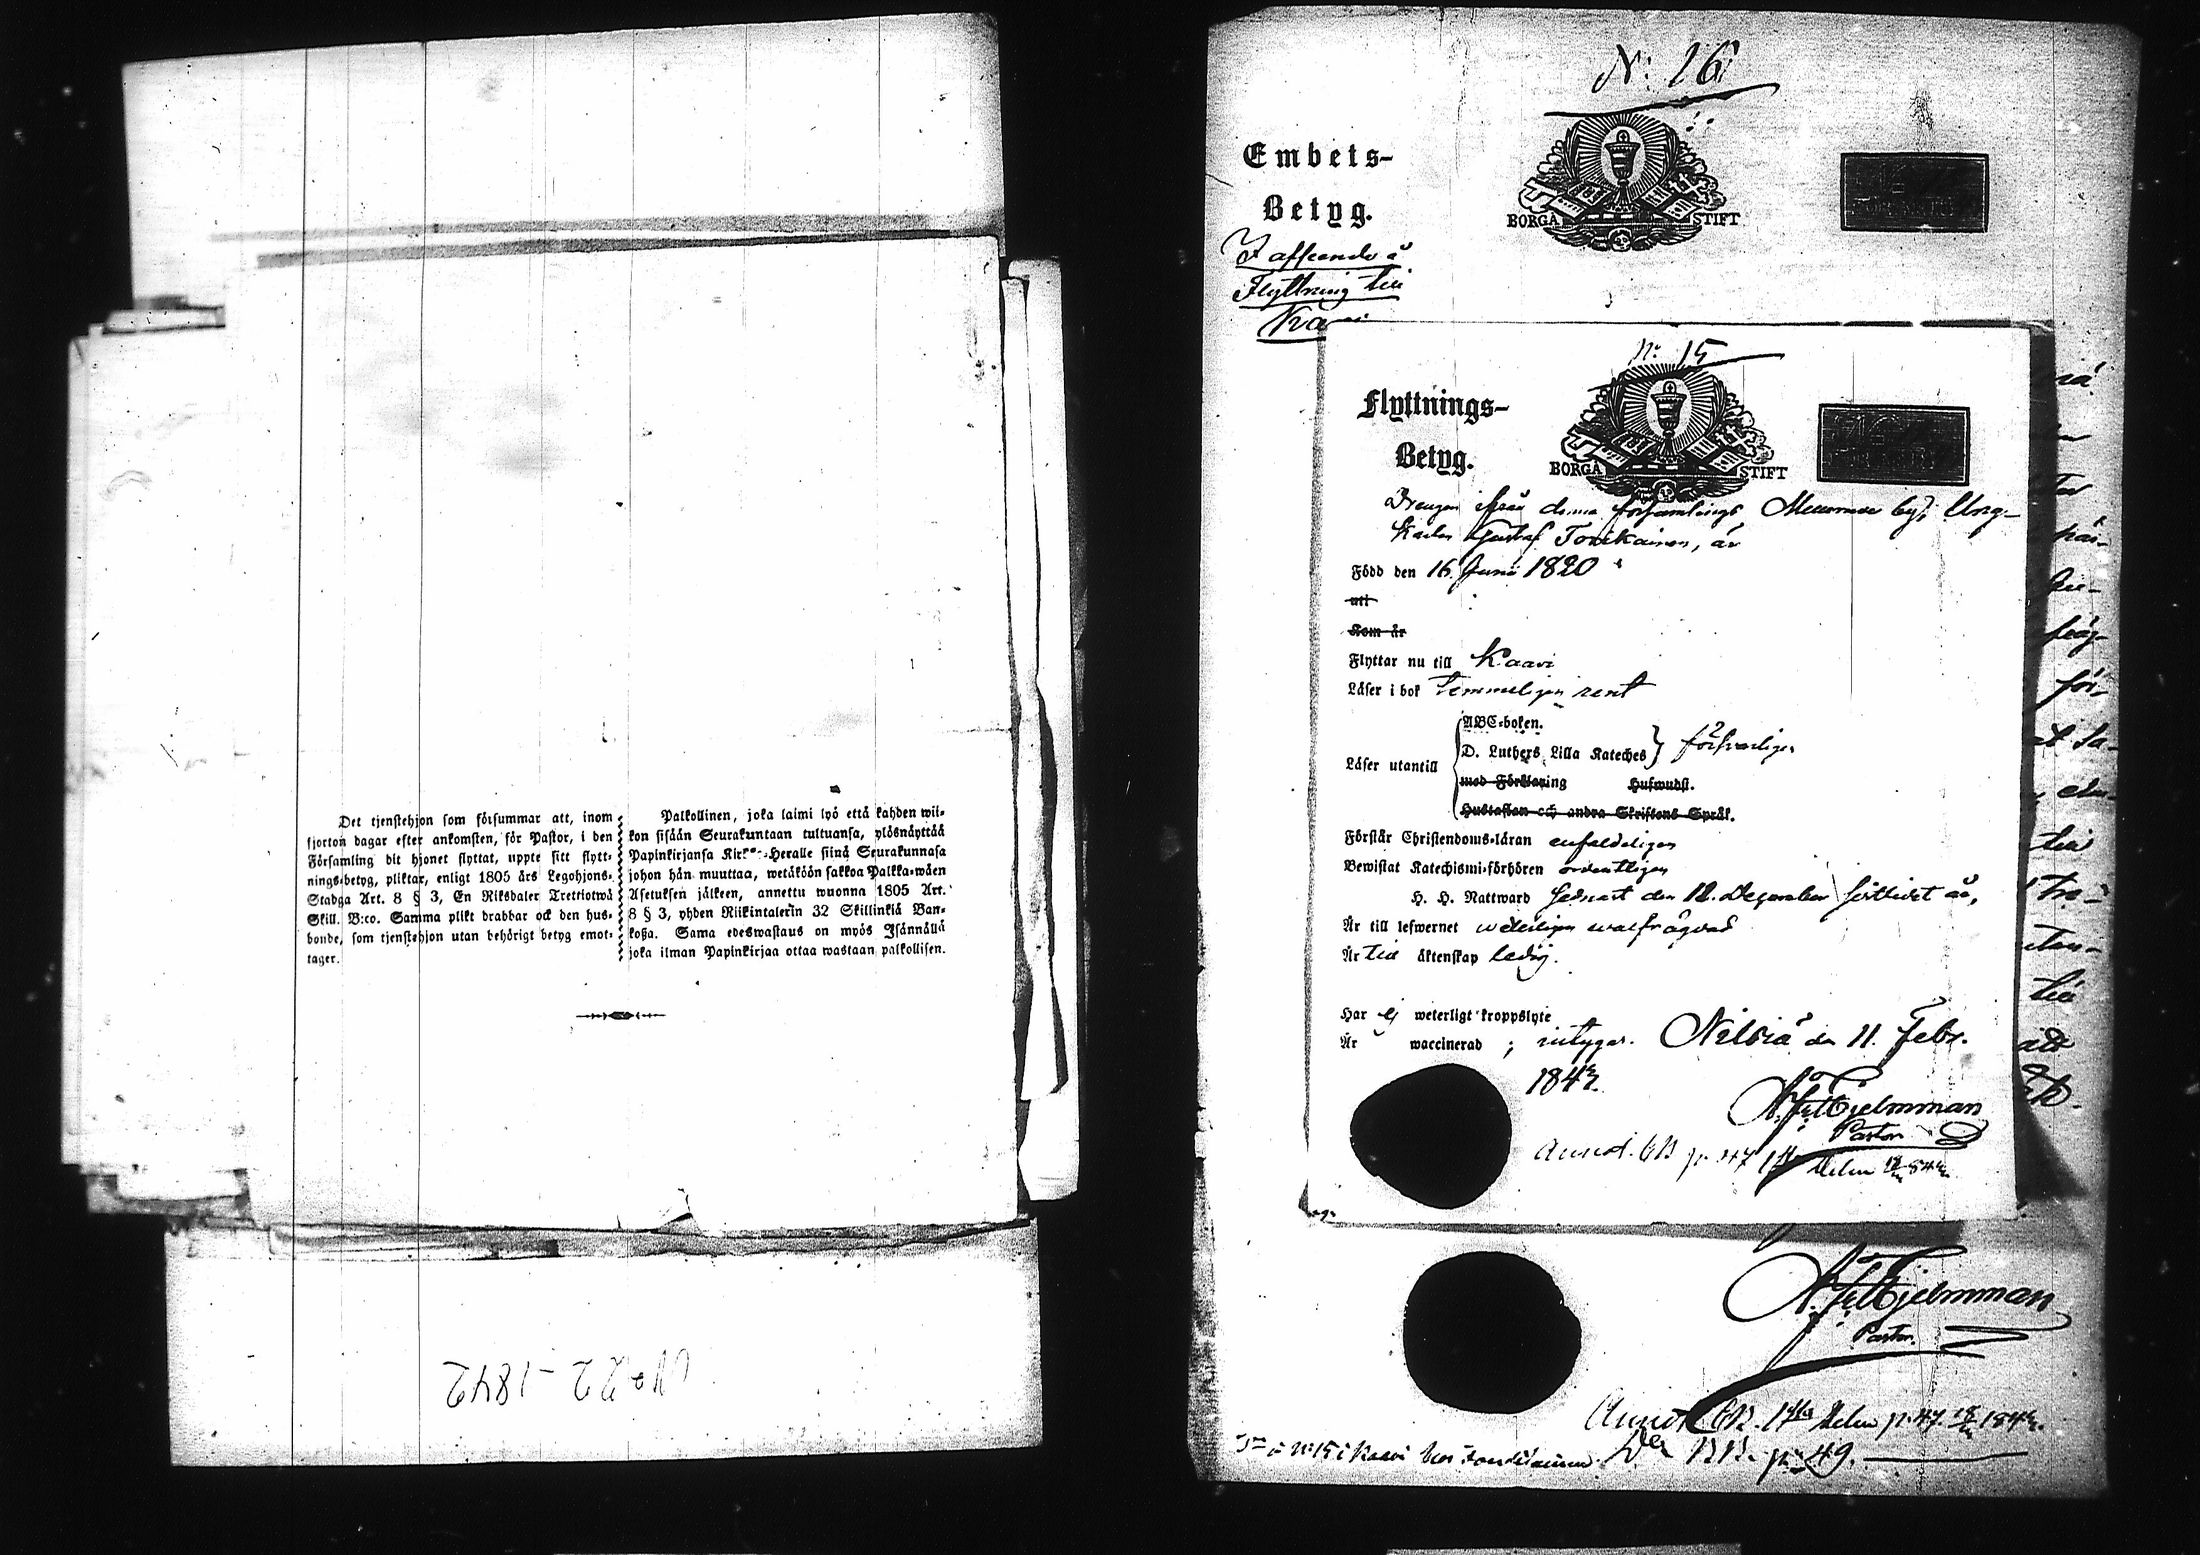 Det tjenstehjon som försummar att, inom
fjorton dagar efter ankomsten, för Pastor, i den
Församling dit hjonet flyttat, uppte sitt flytt-
nings-betyg, pliktar, enligt 1805 års Legohjons-
Stadga Art. 8 § 3, En Riksdaler Trettiotwå
Skill. B:co. Samma plikt drabbar ock den hus-
bonde, som tjenstehjon utan behörigt betyg emot-
tager.
Palkollinen, joka laimi lyö että kahden wii-
kon sisään Seurakuntaan tultuansa, ylösnäyttää
Papinkirjansa Kirko-Heralle siinä Seurakunnasa
johon hän muuttaa, wetäköön sakkoa Palkka-wäen
Asetuksen jälkeen, annettu wuonna 1805 Art.
8 § 3, yhden Riikintalerin 32 Skillinkiä Ban-
koßa. Sama edeswastaus on myös Isännällä
joka ilman Papinkirjaa ottaa wastaan palkollisen.
No 22 - 1842
N: 16
Embets-
Betyg.
BORGÅ STIFT
I afseende å
Flyttning till
N:o 15
Flyttnings-
Betyg.
BORGÅ STIFT
Drengen ifrån denna församlings by, Ung-
karlen Gustaf Tonikainen, är
Född den 16 Juni 1820
uti
Kom år
Flyttar nu till Kaavi
Läser i bok temmeligen rent
ABC-boken.
Läser utantill D. Luthers Lilla Kateches försvarligen
med Förklaring Hufwudst.
Hustaflan och andra Skriftens Språk.
Förstår Christendoms-läran enfaldeligen
Bewistat Katechismi-förhören ordentligen
H. H. Nattward sednast den 12. December förflutet år,
Är till lefwernet weterligen walfrägdad
Är till äktenskap ledig.
Har ej weterligt kroppslyte
Är waccinerad ; intygar. Nilsiä den 11. Febr.
1842.
Hjelmman
Pastor
Annot. CB p. 47 Delen
Hjelmman
Pastor.
Annot. CB. 1sta Delen p. 47 1842.
N:o 15 i Kaavi p. 49.